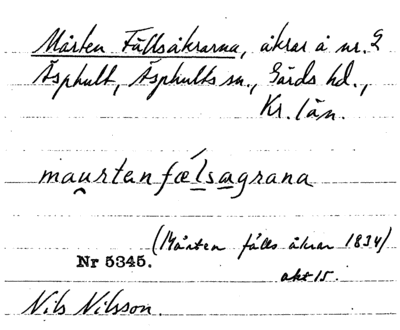 Mårten Fällsåkrarna, åkrar å nr. 2
Äsphult, Äsphults sn., Gärds hd.,
Kr. län.
maurtenfælsagrana
(Mårten fälls åkrar 1834)
Nr 5345.
akt 15.
Nils Nilsson.